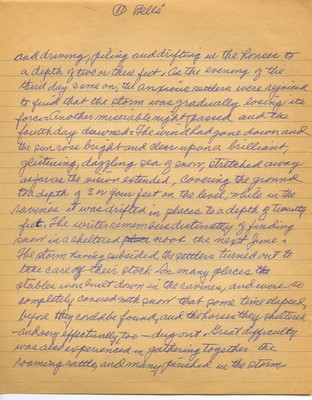 ⑪ Bells
and driving, piling and drifting in the houses to
a depth of two or three feet. As the evening of the
third day came on, the anxious settlers were rejoiced
to find that the storm was gradually losing its
force. Another miserable night passed and the
fourth day dawned. The wind had gone down and
the sun rose bright and clear upon a brilliant,
glistening, dazzling sea of snow, stretched away
as far as the vision extended, covering the ground
to a depth of 3 or four feet on the level, while in the
ravines it was drifted in places to a depth of twenty
feet. The writer remembers distinctly of finding
snow in a sheltered nook the next June.
The storm having subsided the settlers turned out to
take care of their stock. In many places the
stables were built down in the ravines, and were so
completely covered with snow that some time elapsed,
before they could be found, and the horses they sheltered
- and very effectually, too - dug out. Great difficulty
was also experienced in gathering together the
roaming cattle, and many perished in the storm.